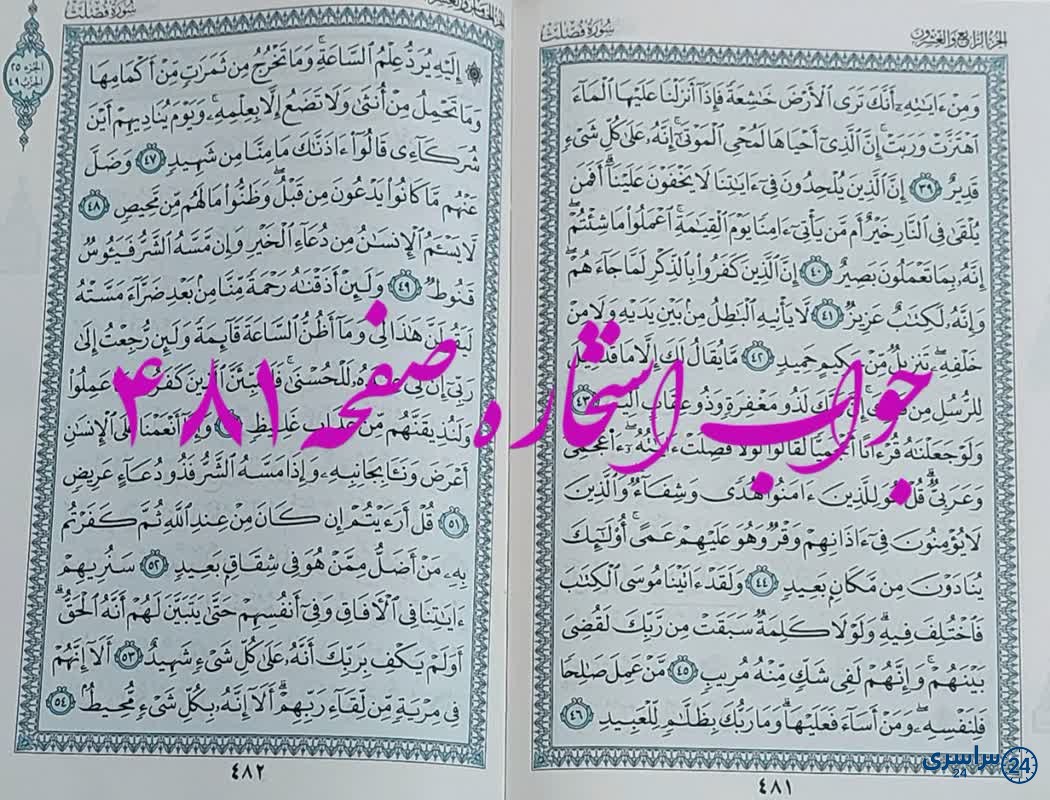 الجزء الرابع والعشرون
سورة فصلت
وَمِنْ ءَايَٰتِهِۦٓ أَنَّكَ تَرَى ٱلْأَرْضَ خَٰشِعَةً فَإِذَآ أَنزَلْنَا عَلَيْهَا ٱلْمَآءَ
ٱهْتَزَّتْ وَرَبَتْ ۚ إِنَّ ٱلَّذِىٓ أَحْيَاهَا لَمُحْىِ ٱلْمَوْتَىٰٓ ۚ إِنَّهُۥ عَلَىٰ كُلِّ شَىْءٍ
قَدِيرٌ ٣٩ إِنَّ ٱلَّذِينَ يُلْحِدُونَ فِىٓ ءَايَٰتِنَا لَا يَخْفَوْنَ عَلَيْنَآ ۗ أَفَمَن
يُلْقَىٰ فِى ٱلنَّارِ خَيْرٌ أَم مَّن يَأْتِىٓ ءَامِنًا يَوْمَ ٱلْقِيَٰمَةِ ۚ ٱعْمَلُوا۟ مَا شِئْتُمْ ۖ
إِنَّهُۥ بِمَا تَعْمَلُونَ بَصِيرٌ ٤٠ إِنَّ ٱلَّذِينَ كَفَرُوا۟ بِٱلذِّكْرِ لَمَّا جَآءَهُمْ ۖ
وَإِنَّهُۥ لَكِتَٰبٌ عَزِيزٌ ٤١ لَّا يَأْتِيهِ ٱلْبَٰطِلُ مِنۢ بَيْنِ يَدَيْهِ وَلَا مِنْ
خَلْفِهِۦ ۖ تَنزِيلٌ مِّنْ حَكِيمٍ حَمِيدٍ ٤٢ مَّا يُقَالُ لَكَ إِلَّا مَا قَدْ قِيلَ
لِلرُّسُلِ مِن لَذُو مَغْفِرَةٍ وَذُو عِقَابٍ ٤٣
وَلَوْ جَعَلْنَٰهُ قُرْءَانًا أَعْجَمِيًّا لَّقَالُوا۟ لَوْلَا فُصِّلَتْ ءَايَٰتُهُۥٓ ۖ ءَا۬عْجَمِىٌّ
وَعَرَبِىٌّ ۗ قُلْ هُوَ لِلَّذِينَ ءَامَنُوا۟ هُدًى وَشِفَآءٌ ۖ وَٱلَّذِينَ
لَا يُؤْمِنُونَ فِىٓ ءَاذَانِهِمْ وَقْرٌ وَهُوَ عَلَيْهِمْ عَمًى ۚ أُو۟لَٰٓئِكَ
يُنَادَوْنَ مِن مَّكَانٍۭ بَعِيدٍ ٤٤ وَلَقَدْ ءَاتَيْنَا مُوسَى ٱلْكِتَٰبَ
فَٱخْتُلِفَ فِيهِ ۗ وَلَوْلَا كَلِمَةٌ سَبَقَتْ مِن رَّبِّكَ لَقُضِىَ
بَيْنَهُمْ ۚ وَإِنَّهُمْ لَفِى شَكٍّ مِّنْهُ مُرِيبٍ ٤٥ مَّنْ عَمِلَ صَٰلِحًا
فَلِنَفْسِهِۦ ۖ وَمَنْ أَسَآءَ فَعَلَيْهَا ۗ وَمَا رَبُّكَ بِظَلَّٰمٍ لِّلْعَبِيدِ ٤٦
٤٨١
سورة فصلت
الجزء ٢٥
الحزب ٤٩
إِلَيْهِ يُرَدُّ عِلْمُ ٱلسَّاعَةِ ۚ وَمَا تَخْرُجُ مِن ثَمَرَٰتٍ مِّنْ أَكْمَامِهَا
وَمَا تَحْمِلُ مِنْ أُنثَىٰ وَلَا تَضَعُ إِلَّا بِعِلْمِهِۦ ۚ وَيَوْمَ يُنَادِيهِمْ أَيْنَ
شُرَكَآءِى قَالُوٓا۟ ءَاذَنَّٰكَ مَا مِنَّا مِن شَهِيدٍ ٤٧ وَضَلَّ
عَنْهُم مَّا كَانُوا۟ يَدْعُونَ مِن قَبْلُ ۖ وَظَنُّوا۟ مَا لَهُم مِّن مَّحِيصٍ ٤٨
لَّا يَسْـَٔمُ ٱلْإِنسَٰنُ مِن دُعَآءِ ٱلْخَيْرِ وَإِن مَّسَّهُ ٱلشَّرُّ فَيَـُٔوسٌ
قَنُوطٌ ٤٩ وَلَئِنْ أَذَقْنَٰهُ رَحْمَةً مِّنَّا مِنۢ بَعْدِ ضَرَّآءَ مَسَّتْهُ
لَيَقُولَنَّ هَٰذَا لِى وَمَآ أَظُنُّ ٱلسَّاعَةَ قَآئِمَةً وَلَئِن رُّجِعْتُ إِلَىٰ
رَبِّىٓ إِنَّ لِى عِندَهُۥ لَلْحُسْنَىٰ ۚ فَلَنُنَبِّئَنَّ ٱلَّذِينَ كَفَرُوا۟ بِمَا عَمِلُوا۟
وَلَنُذِيقَنَّهُم مِّنْ عَذَابٍ غَلِيظٍ وَإِذَآ أَنْعَمْنَا عَلَى ٱلْإِنسَٰنِ
أَعْرَضَ وَنَـَٔا بِجَانِبِهِۦ وَإِذَا مَسَّهُ ٱلشَّرُّ فَذُو دُعَآءٍ عَرِيضٍ
٥١ قُلْ أَرَءَيْتُمْ إِن كَانَ مِنْ عِندِ ٱللَّهِ ثُمَّ كَفَرْتُم
بِهِۦ مَنْ أَضَلُّ مِمَّنْ هُوَ فِى شِقَاقٍۭ بَعِيدٍ ٥٢ سَنُرِيهِمْ
ءَايَٰتِنَا فِى ٱلْءَافَاقِ وَفِىٓ أَنفُسِهِمْ حَتَّىٰ يَتَبَيَّنَ لَهُمْ أَنَّهُ ٱلْحَقُّ ۗ
أَوَلَمْ يَكْفِ بِرَبِّكَ أَنَّهُۥ عَلَىٰ كُلِّ شَىْءٍ شَهِيدٌ ٥٣ أَلَآ إِنَّهُمْ
فِى مِرْيَةٍ مِّن لِّقَآءِ رَبِّهِمْ ۗ أَلَآ إِنَّهُۥ بِكُلِّ شَىْءٍ مُّحِيطٌۢ ٥٤
٤٨٢
جواب استخاره صفحه ۴۸۱
سراسری 24
24